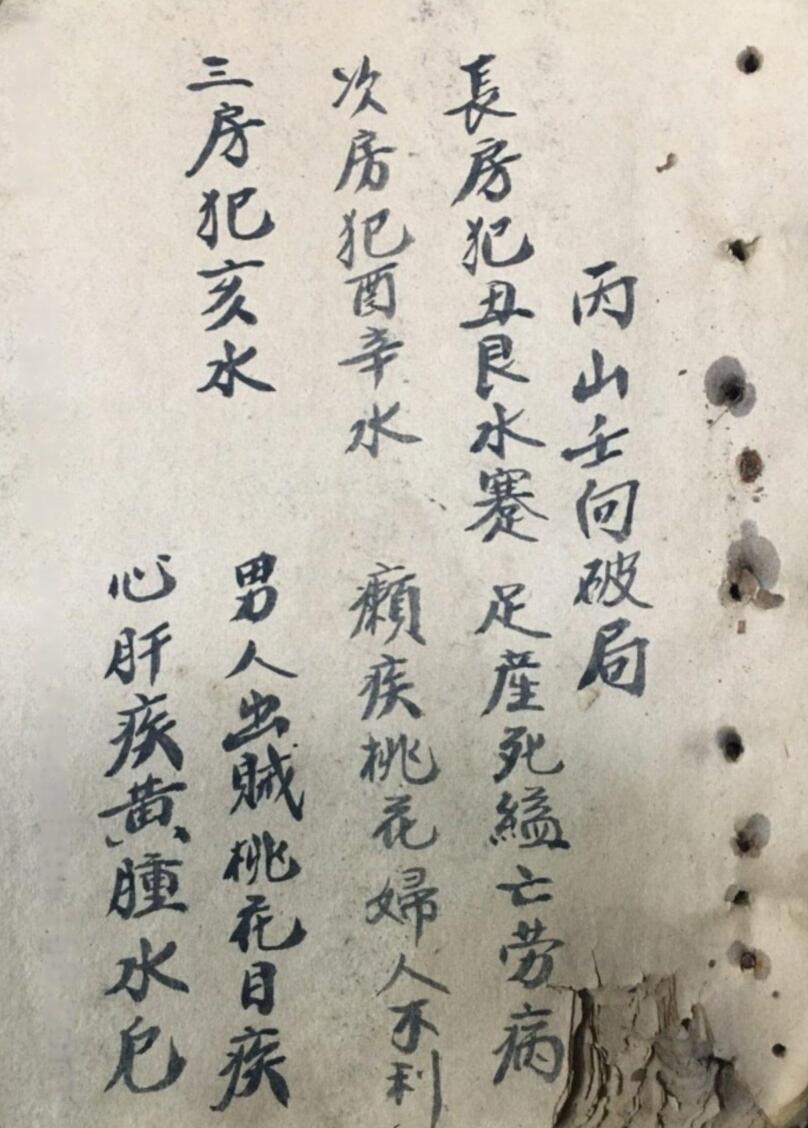 丙山壬向破局
長房犯丑艮水蹇足産死縊亡劳病
次房犯酉辛水 癩疾桃花婦人不利
三房犯亥水 男人出賊桃花目疾
心肝疾黄腫水